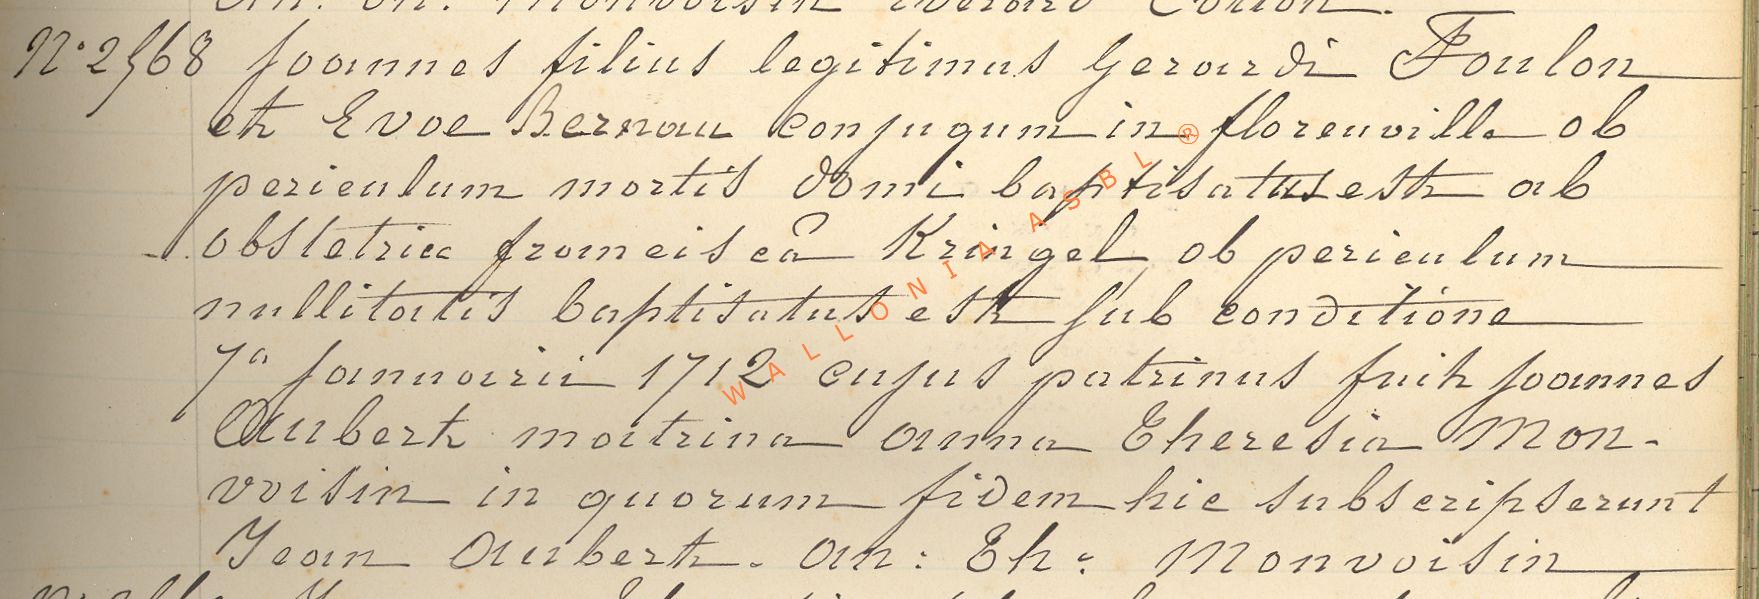 An. Th. Monvoisin Everard Torton.
N° 2568 Joannes filius legitimus Gerardi Foulon
et Evoe Bernau conjugum in florenville ob
periculum mortis domi baptisatus est ab
obstetrice francisca Kringel ob periculum
nullitatis baptisatus est sub conditione
7a Januarii 1712 cujus patrinus fuit Joannes
Aubert matrina anna Theresia Mon-
voisin in quorum fidem hic subscripserunt
Jean Aubert. An: Th: Monvoisin
WALLONIA ASBL ®